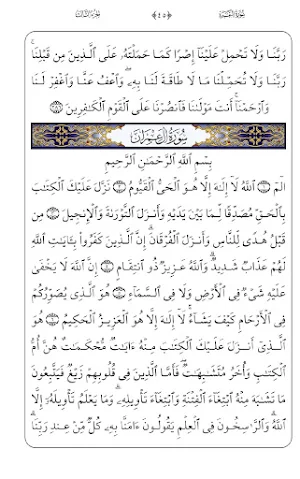 سُورَةُ البَقَرَةِ ﴿٤٥﴾ الجُزءُ الثَّالِثُ
رَبَّنَا وَلَا تَحْمِلْ عَلَيْنَآ إِصْرًا كَمَا حَمَلْتَهُۥ عَلَى ٱلَّذِينَ مِن قَبْلِنَا ۚ
رَبَّنَا وَلَا تُحَمِّلْنَا مَا لَا طَاقَةَ لَنَا بِهِۦ ۖ وَٱعْفُ عَنَّا وَٱغْفِرْ لَنَا
وَٱرْحَمْنَآ ۚ أَنتَ مَوْلَىٰنَا فَٱنصُرْنَا عَلَى ٱلْقَوْمِ ٱلْكَٰفِرِينَ ۝٢٨٦
سُورَةُ آلِ عِمْرَان
بِسْمِ ٱللَّهِ ٱلرَّحْمَٰنِ ٱلرَّحِيمِ
الٓمٓ ۝١ ٱللَّهُ لَآ إِلَٰهَ إِلَّا هُوَ ٱلْحَىُّ ٱلْقَيُّومُ ۝٢ نَزَّلَ عَلَيْكَ ٱلْكِتَٰبَ
بِٱلْحَقِّ مُصَدِّقًا لِّمَا بَيْنَ يَدَيْهِ وَأَنزَلَ ٱلتَّوْرَىٰةَ وَٱلْإِنجِيلَ ۝٣ مِن
قَبْلُ هُدًى لِّلنَّاسِ وَأَنزَلَ ٱلْفُرْقَانَ ۗ إِنَّ ٱلَّذِينَ كَفَرُوا۟ بِـَٔايَٰتِ ٱللَّهِ
لَهُمْ عَذَابٌ شَدِيدٌ ۗ وَٱللَّهُ عَزِيزٌ ذُو ٱنتِقَامٍ ۝٤ إِنَّ ٱللَّهَ لَا يَخْفَىٰ
عَلَيْهِ شَىْءٌ فِى ٱلْأَرْضِ وَلَا فِى ٱلسَّمَآءِ ۝٥ هُوَ ٱلَّذِى يُصَوِّرُكُمْ
فِى ٱلْأَرْحَامِ كَيْفَ يَشَآءُ ۚ لَآ إِلَٰهَ إِلَّا هُوَ ٱلْعَزِيزُ ٱلْحَكِيمُ ۝٦ هُوَ
ٱلَّذِىٓ أَنزَلَ عَلَيْكَ ٱلْكِتَٰبَ مِنْهُ ءَايَٰتٌ مُّحْكَمَٰتٌ هُنَّ أُمُّ
ٱلْكِتَٰبِ وَأُخَرُ مُتَشَٰبِهَٰتٌ ۖ فَأَمَّا ٱلَّذِينَ فِى قُلُوبِهِمْ زَيْغٌ فَيَتَّبِعُونَ
مَا تَشَٰبَهَ مِنْهُ ٱبْتِغَآءَ ٱلْفِتْنَةِ وَٱبْتِغَآءَ تَأْوِيلِهِۦ ۗ وَمَا يَعْلَمُ تَأْوِيلَهُۥٓ إِلَّا
ٱللَّهُ ۗ وَٱلرَّٰسِخُونَ فِى ٱلْعِلْمِ يَقُولُونَ ءَامَنَّا بِهِۦ كُلٌّ مِّنْ عِندِ رَبِّنَا ۗ